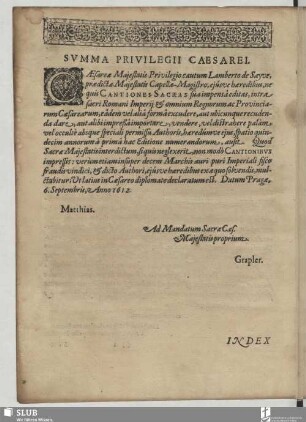 SVMMA PRIVILEGII CAESAREI.
CAesareæ Majestatis Privilegio cautum Lamberto de Sayve,
prædictæ Majestatis Capellæ Magistro, ejusve heredibus, ne
quis CANTIONES SACRAS suâ impensâ editas, intra
sacri Romani Imperij & omnium Regnorum, ac Provincia-
rum Cæsarearum, eâdem vel aliâ formâ excudere, aut ubicunque recuden-
das dare, aut alibi impressas importare, vendere, vel distrahere palam,
vel occultè absque speciali permissu Authoris, hæredumve ejus, spatio quin-
decim annorum à prima hac Editione numerandorum, ausit. Quod
Sacræ Majestatis interdictum si quis neglexerit, non modò CANTIONIBVS
impressis: verum etiam insuper decem Marchis auri puri Imperiali fisco
fraudis vindici, & dicto Authori, ejusve hæredibus ex æquo solvendis, mul-
ctabitur. Ut latius in Cæsareo diplomate declaratum est. Datum Pragæ,
6. Septembris, Anno 1612.
Matthias.
Ad Mandatum Sacræ Cæs.
Majestatis proprium.
Grapler.
INDEX
SLUB
Wir führen Wissen.